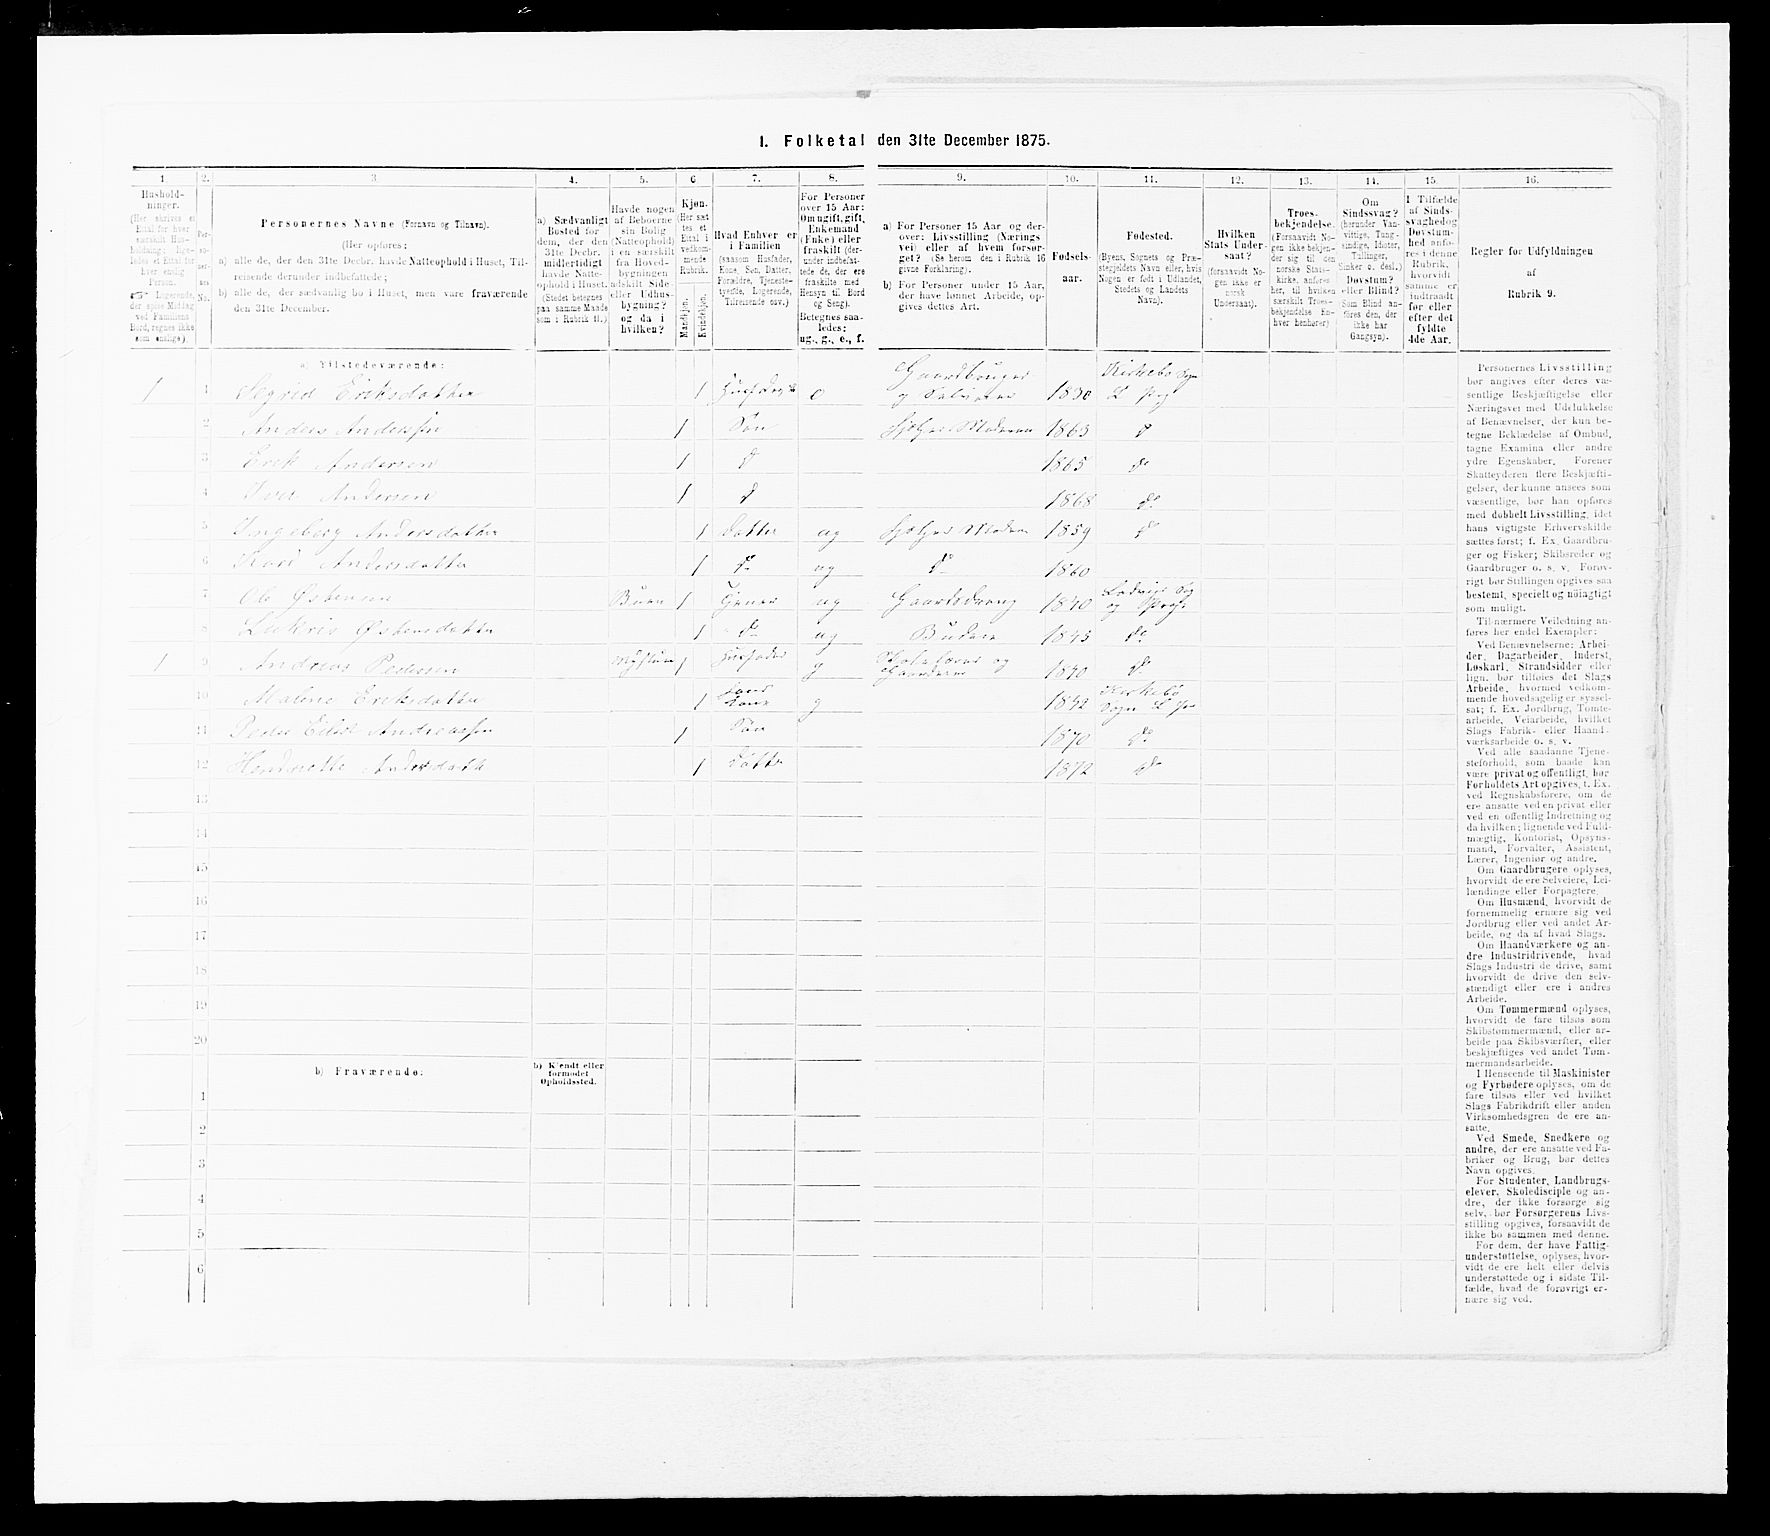 1. Folketal den 31te December 1875.
1. 2. 3. 4. 5. 6 7. 8. 9. 10. 11. 12. 13. 14. 15. 16.
Hushold-
ninger.
(Her skrives et
Ettal for hver
særskilt Hus-
holdning; lige-
ledes et Ettal for
hver enslig
Person.
☞ Logerende,
der spise Middag
ved Familiens
Bord, regnes ikke
som enslige).
Per-
so-
ner-
nes
No.
Personernes Navne (Fornavn og Tilnavn).
(Her opføres:
a) alle de, der den 31te Decbr. havde Natteophold i Huset, Til-
reisende derunder indbefattede;
b) alle de, der sædvanlig bo i Huset, men vare fraværende
den 31te December.
a) Sædvanligt
Bosted for
dem, der den
31te Decbr.
midlertidigt
havde Natte-
ophold i Huset.
(Stedet betegnes
paa samme Maade
som i Rubrik 11.)
Havde nogen
af Beboerne
sin Bolig
(Natteophold)
i en særskilt
fra Hoved-
bygningen
adskilt Side-
eller Udhus-
bygning?
og da i
hvilken?
Kjøn.
(Her sæt
tes et
Ettal i
vedkom-
mende
Rubrik.
Mandkjøn.
Kvindekjøn.
Hvad Enhver er
i Familien
(saasom Husfader,
Kone, Søn, Datter,
Forældre, Tjeneste-
tyende, Logerende,
Tilreisende osv.)
For Personer
over 15 Aar:
Om ugift, gift,
Enkemand
(Enke) eller
fraskilt (der-
under indbefat-
tede de, der ere
fraskilte med
Hensyn til Bord
og Seng).
Betegnes saa-
ledes:
ug., g., e., f.
a) For Personer 15 Aar og der-
over: Livsstilling (Nærings
vei) eller af hvem forsør-
get? (Se herom den i Rubrik 16
givne Forklaring).
b) For Personer under 15 Aar,
der have lønnet Arbeide, op-
gives dettes Art.
Fødsels-
aar.
Fødested.
(Byens, Sognets og Præ-
stegjeldets Navn eller, hvis
Nogen er født i Udlandet,
Stedets og Landets
Navn).
Hvilken
Stats Under-
saat?
(forsaavidt No-
gen ikke er
norsk
Undersaat).
Troes-
bekjendelse.
(Forsaavidt No-
gen ikke bekjen-
der sig til den
norske Stats-
kirke, anføres
her, til hvilken
særskilt Troes-
bekjendelse En-
hver henhører)
Om
Sindssvag?
(herunder Van-
vittige, Tung-
sindige, Idioter,
Tullinger,
Sinker o. desl.)
Døvstum?
eller Blind?
(Som Blind an-
føres den, der
ikke har
Gangsyn).
I Tilfælde
af Sinds-
svaghed og
Døvstum-
hed anfø-
res i denne
Rubrik,
hvorvidt
samme er
indtraadt
før eller
efter det
fyldte
4de Aar.
Regler for Udfyldningen
af
Rubrik 9.
a) Tilstedeværende:
1 1 Sigrid Eriksdatter 1 e Gaardbruger og Selveier 1830 Kirkebø Sogn
2 Anders Anderssen 1 Søn Hjelper Moderen 1863 do
3 Erik Andersen 1 do 1865 do
4 Iver Andersen 1 do 1868 do
5 Ingeborg Andersdatter 1 Datter ug Hjelper Moderen 1859 do
6 Kari Andersdatter 1 do ug do 1860
7 Ole Østensen 1 Tjener ug Gaardsdreng 1840
8 Østensdatter 1 do ug Budeie 1845 do
1 9 Andreas Pedersen 1 Husfader g Skolelærer og 1840 do
10 Malene Eriksdatter 1 Kone g 1842 Kirkebø Sogn
11 Peder Andreassen 1 Søn 1870 do
12 1 Datter 1872 do
13
14
15
16
17
18
19
20
b) Fraværende:
b) Kjendt eller
formodet
Opholdssted.
1
2
3
4
5
6
Personernes Livsstilling
bør angives efter deres væ-
sentlige Beskjæftigelse eller
Næringsvei med Udelukkelse
af Benævnelser, der kun be-
tegne Beklædelse af Ombud,
tagne Examina eller andre
ydre Egenskaber. Forener
Skatteyderen flere Beskjæfti-
gelser, der kunne ansees som
væsentlige, bør han opføres
med dobbelt Livsstilling, idet
hans vigtigste Erhvervskilde
sættes først; f. Ex. Gaardbru-
ger og Fisker; Skibsreder og
Gaardbruger o. s. v. Forøv-
rigt bør Stillingen opgives saa
bestemt, specielt og nøiagtigt
som muligt.
Til nærmere Veiledning an-
føres her endel Exempler:
Ved Benævnelserne: Arbei-
der, Dagarbeider, Inderst,
Løskarl, Strandsidder eller
lign. bør tilføies det Slags
Arbeide, hvormed vedkom-
mende hovedsagelig er syssel-
sat; f. Ex. Jordbrug, Tomte-
arbeide, Veiarbeide, hvilket
Slags Fabrik- eller Haand-
værksarbeide o. s. v.
Ved alle saadanne Tjene-
steforhold, som baade kan
være privat og offentligt, bør
Forholdets Art opgives, t. Ex.
ved Regnskabsførere, om de
ere ansatte ved en privat eller
ved en offentlig Indretning og
da hvilken; lignende ved Fuld-
mægtig, Kontorist, Opsyns-
mand, Forvalter, Assistent,
Lærer, Ingeniør og andre.
Om Gaardbrugere oplyses,
hvorvidt de ere Selveiere, Lei-
lændinge eller Forpagtere.
Om Husmænd, hvorvidt de
fornemmelig ernære sig ved
Jordbrug eller ved andet Ar-
beide, og da af hvad Slags.
Om Haandværkere og an-
dre Industridrivende, hvad
Slags Industri de drive, samt
hvorvidt de drive den selv-
stændigt eller ere i andres
Arbeide.
Om Tømmermænd oplyses,
hvorvidt de fare tilsøs som
Skibstømmermænd, eller ar-
beide paa Skibsværfter, eller
beskjæftiges ved andet Tøm-
mermandsarbeide.
I Henseende til Maskinister
og Fyrbødere oplyses, om de
fare tilsøs eller ved hvilket
Slags Fabrikdrift eller anden
Virksomhedsgren de ere an-
satte.
Ved Smede, Snedkere og
andre, der ere ansatte ved Fa-
briker og Brug, bør dettes
Navn opgives.
For Studenter, Landbrugs-
elever, Skoledisciple og an-
dre, der ikke forsørge sig
selv, bør Forsørgerens Livs-
stilling opgives, forsaavidt de
ikke bo sammen med denne.
For dem, der have Fattig-
understøttelse, oplyses, hvor-
vidt de ere helt eller delvis
understøttede og i sidste Til-
fælde, hvad de forøvrigt er-
nære sig ved.